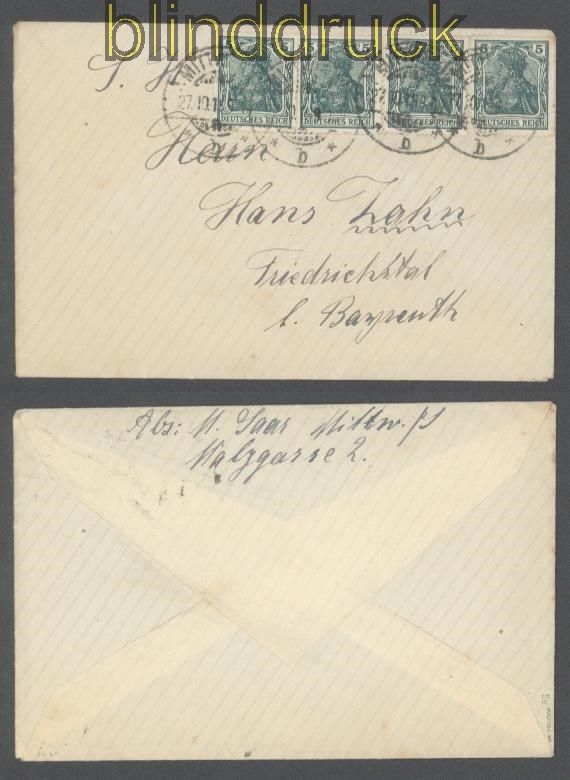 blinddruck
5 5 5 5 5
DEUTSCHES REICH DEUTSCHES REICH DEUTSCHES REICH DEUTSCHES REICH
MITT
27.10.1
b b b
S. H
Herrn
Hans Zahn
Friedrichstal
b. Bayreuth
Abs: M. Saar Mittw. /S
Walzgasse 2.